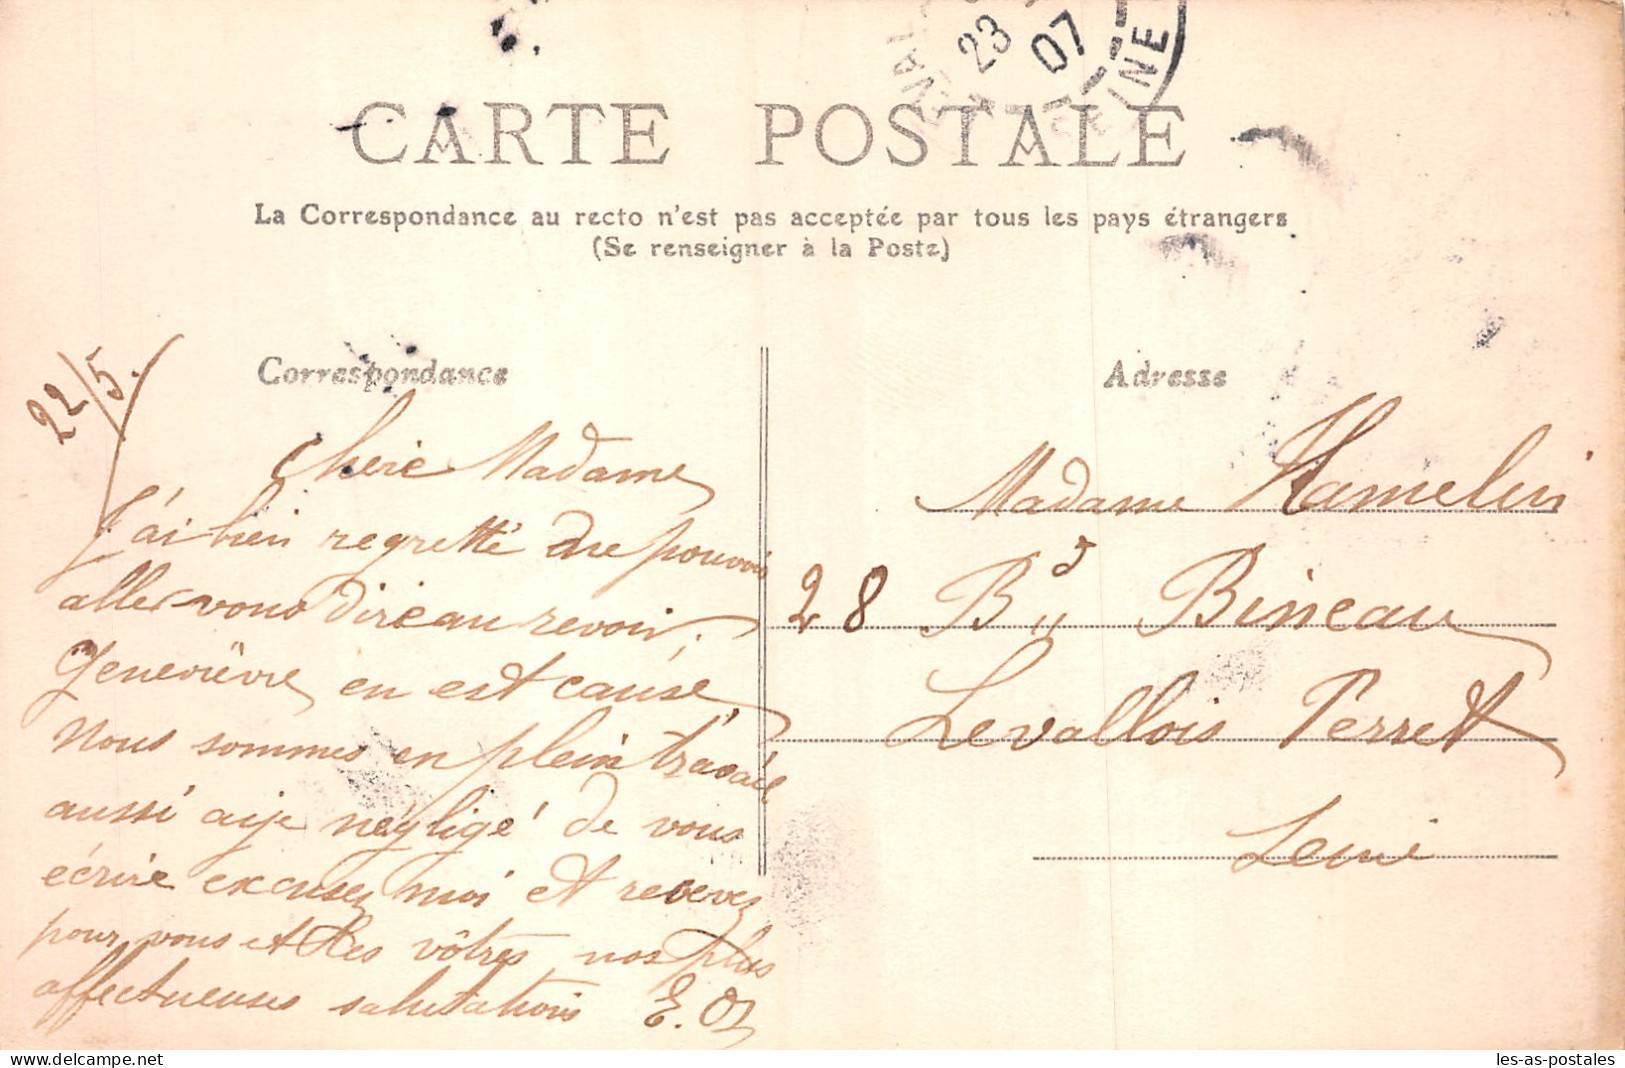 23
07
INE
CARTE POSTALE
La Correspondance au recto n'est pas acceptée par tous les pays étrangers
(Se renseigner à la Poste)
Correspondance
22/5.
Chère Madame
J'ai bien regretté de ne pouvoir
aller vous dire au revoir.
Geneviève en est cause
Nous sommes en plein travail
aussi ai je négligé de vous
écrire excusez moi et recevez
pour vous et les vôtres nos plus
affectueuses salutations E.
Adresse
Madame Hamelin
28 Bd Bineau
Levallois Perret
Seine
delcampe.net
les-as-postales